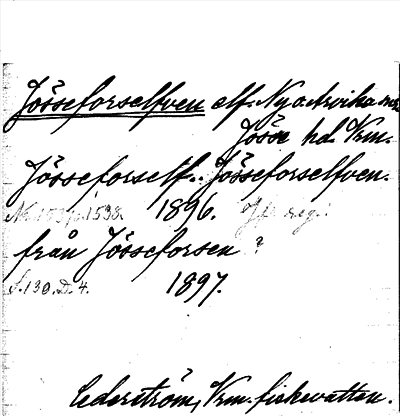 Jösseforselfven elf. Ny o. Arvika snr
Jösse hd. Vrm.
Jösseforself.. Jösseforselfven.
1896. Jfr reg.
från Jösseforsen ?
S. 130. D. 4. 1897.
Cederström, Vrm. fiskevatten.